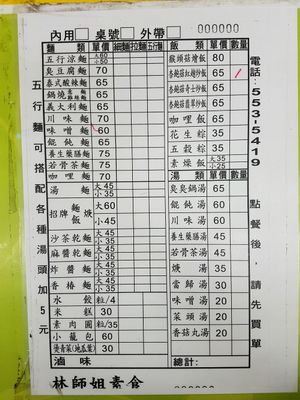 內用□ 桌號□ 外帶□ 000000
麵類 單價 細麵 拉麵
五行涼麵 大60 小50
臭豆腐麵 70
泰式酸辣麵 65
鍋燒意麵 65
義大利麵 65
川味麵 70
味噌麵 60
餛飩麵 65
養生藥膳麵 75
若骨茶麵 75
咖哩麵 70
湯麵 大45 小35
招牌麵 焿 大60 小45
沙茶乾麵 大45 小35
麻醬乾麵 大45 小35
炸醬麵 大45 小35
香椿麵 大45 小35
水餃 粒/4
米糕 30
素肉圓 粒/35
小籠包 60
燙青菜(地瓜葉) 30
滷味
飯類 單價 數量
猴頭菇燴飯 80
杏鮑菇紅麴炒飯 65
杏鮑菇香椿炒飯 65
杏鮑菇翡翠炒飯 65
咖哩飯 65
花生粽 35
五穀粽 35
素燥飯 大35 小25
湯類 單價 數量
臭臭鍋湯 65
餛飩湯 60
川味湯 60
養生藥膳湯 45
若骨茶湯 45
焿湯 35
當歸湯 30
味噌湯 20
菜頭湯 20
香菇丸湯 20
總計:
五行麵可搭配各種湯頭加5元
電話:553-5419
點餐後,請先買單
林師姐素食